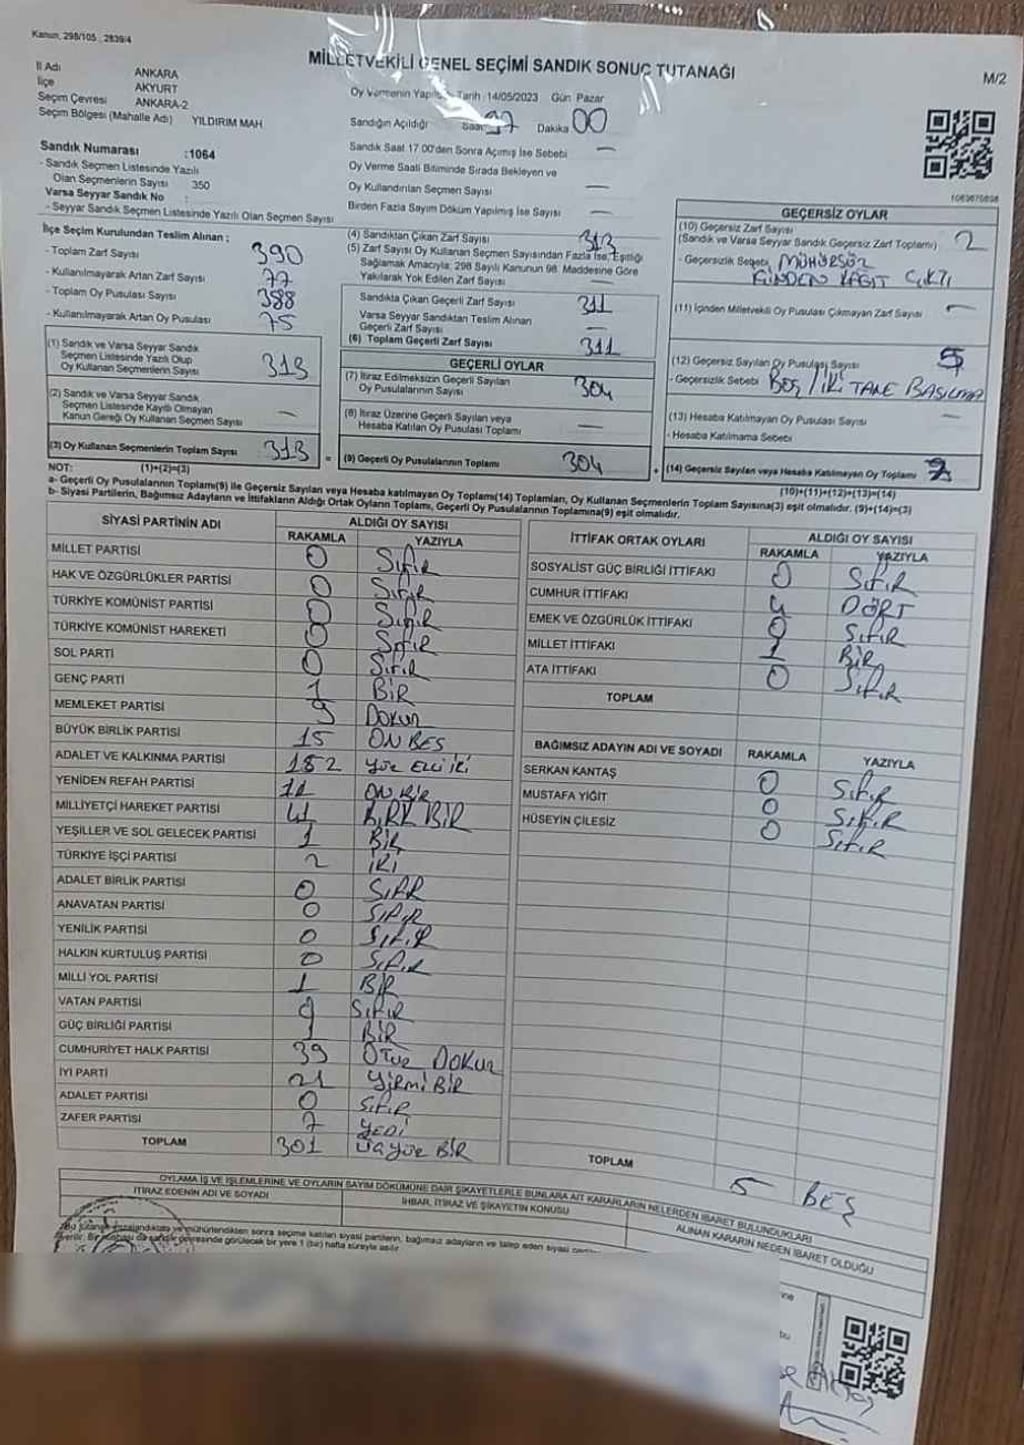 Kanun, 298/105 , 2839/4
MİLLETVEKİLİ GENEL SEÇİMİ SANDIK SONUÇ TUTANAĞI
M/2
İl Adı ANKARA
İlçe AKYURT
Seçim Çevresi ANKARA-2
Seçim Bölgesi (Mahalle Adı) YILDIRIM MAH
Oy Vermenin Yapıldığı Tarih :14/05/2023 Gün Pazar
Sandığın Açıldığı Saat Dakika 00
Sandık Saat 17.00'den Sonra Açılmış İse Sebebi —
Oy Verme Saati Bitiminde Sırada Bekleyen ve
Oy Kullandırılan Seçmen Sayısı —
Birden Fazla Sayım Döküm Yapılmış İse Sayısı —
Sandık Numarası :1064
- Sandık Seçmen Listesinde Yazılı
Olan Seçmenlerin Sayısı 350
Varsa Seyyar Sandık No :
- Seyyar Sandık Seçmen Listesinde Yazılı Olan Seçmen Sayısı
İlçe Seçim Kurulundan Teslim Alınan ;
- Toplam Zarf Sayısı 390
- Kullanılmayarak Artan Zarf Sayısı 77
- Toplam Oy Pusulası Sayısı 388
- Kullanılmayarak Artan Oy Pusulası 75
(1) Sandık ve Varsa Seyyar Sandık
Seçmen Listesinde Yazılı Olup
Oy Kullanan Seçmenlerin Sayısı 313
(2) Sandık ve Varsa Seyyar Sandık
Seçmen Listesinde Kayıtlı Olmayan
Kanun Gereği Oy Kullanan Seçmen Sayısı —
(3) Oy Kullanan Seçmenlerin Toplam Sayısı 313
(4) Sandıktan Çıkan Zarf Sayısı 313
(5) Zarf Sayısı Oy Kullanan Seçmen Sayısından Fazla İse, Eşitliği
Sağlamak Amacıyla; 298 Sayılı Kanunun 98. Maddesine Göre
Yakılarak Yok Edilen Zarf Sayısı —
Sandıkta Çıkan Geçerli Zarf Sayısı 311
Varsa Seyyar Sandıktan Teslim Alınan
Geçerli Zarf Sayısı —
(6) Toplam Geçerli Zarf Sayısı 311
GEÇERLİ OYLAR
(7) İtiraz Edilmeksizin Geçerli Sayılan
Oy Pusulalarının Sayısı 304
(8) İtiraz Üzerine Geçerli Sayılan veya
Hesaba Katılan Oy Pusulası Toplamı —
= (9) Geçerli Oy Pusulalarının Toplamı 304
1063670898
GEÇERSİZ OYLAR
(10) Geçersiz Zarf Sayısı
(Sandık ve Varsa Seyyar Sandık Geçersiz Zarf Toplamı) 2
- Geçersizlik Sebebi MÜHÜRSÜZ
İÇİNDEN KAĞIT ÇIKTI
(11) İçinden Milletvekili Oy Pusulası Çıkmayan Zarf Sayısı —
(12) Geçersiz Sayılan Oy Pusulası Sayısı 5
- Geçersizlik Sebebi BOŞ / İKİ TANE BASILMA
(13) Hesaba Katılmayan Oy Pusulası Sayısı —
- Hesaba Katılmama Sebebi
+ (14) Geçersiz Sayılan veya Hesaba Katılmayan Oy Toplamı
NOT: (1)+(2)=(3)
(10)+(11)+(12)+(13)=(14)
a- Geçerli Oy Pusulalarının Toplamı(9) ile Geçersiz Sayılan veya Hesaba katılmayan Oy Toplamı(14) Toplamları, Oy Kullanan Seçmenlerin Toplam Sayısına(3) eşit olmalıdır. (9)+(14)=(3)
b- Siyasi Partilerin, Bağımsız Adayların ve İttifakların Aldığı Ortak Oyların Toplamı, Geçerli Oy Pusulalarının Toplamına(9) eşit olmalıdır.
SİYASİ PARTİNİN ADI ALDIĞI OY SAYISI
RAKAMLA YAZIYLA
MİLLET PARTİSİ 0 SıfıR
HAK VE ÖZGÜRLÜKLER PARTİSİ 0 SıfıR
TÜRKİYE KOMÜNİST PARTİSİ 0 SıfıR
TÜRKİYE KOMÜNİST HAREKETİ 0 SıfıR
SOL PARTİ 0 SıfıR
GENÇ PARTİ 1 BİR
MEMLEKET PARTİSİ 9 DOKUZ
BÜYÜK BİRLİK PARTİSİ 15 ON BEŞ
ADALET VE KALKINMA PARTİSİ 152 YÜZ ELLİ İKİ
YENİDEN REFAH PARTİSİ 11 ON BİR
MİLLİYETÇİ HAREKET PARTİSİ 41 KIRK BİR
YEŞİLLER VE SOL GELECEK PARTİSİ 1 BİR
TÜRKİYE İŞÇİ PARTİSİ 2 İKİ
ADALET BİRLİK PARTİSİ 0 SıfıR
ANAVATAN PARTİSİ 0 SıfıR
YENİLİK PARTİSİ 0 SıfıR
HALKIN KURTULUŞ PARTİSİ 0 SıfıR
MİLLİ YOL PARTİSİ 1 BİR
VATAN PARTİSİ 0 SıfıR
GÜÇ BİRLİĞİ PARTİSİ 1 BİR
CUMHURİYET HALK PARTİSİ 39 OTUZ DOKUZ
İYİ PARTİ 21 YİRMİ BİR
ADALET PARTİSİ 0 SıfıR
ZAFER PARTİSİ 7 YEDİ
TOPLAM 301 ÜÇ YÜZ BİR
İTTİFAK ORTAK OYLARI ALDIĞI OY SAYISI
RAKAMLA YAZIYLA
SOSYALİST GÜÇ BİRLİĞİ İTTİFAKI 0 SıfıR
CUMHUR İTTİFAKI 4 DÖRT
EMEK VE ÖZGÜRLÜK İTTİFAKI 0 SıfıR
MİLLET İTTİFAKI 1 BİR
ATA İTTİFAKI 0 SıfıR
TOPLAM
BAĞIMSIZ ADAYIN ADI VE SOYADI RAKAMLA YAZIYLA
SERKAN KANTAŞ 0 SıfıR
MUSTAFA YİĞİT 0 SıfıR
HÜSEYİN ÇİLESİZ 0 SıfıR
TOPLAM 5 BEŞ
OYLAMA İŞ VE İŞLEMLERİNE VE OYLARIN SAYIM DÖKÜMÜNE DAİR ŞİKAYETLERLE BUNLARA AİT KARARLARIN NELERDEN İBARET BULUNDUKLARI
İTİRAZ EDENİN ADI VE SOYADI İHBAR, İTİRAZ VE ŞİKAYETİN KONUSU ALINAN KARARIN NEDEN İBARET OLDUĞU
Bu tutanak imzalandıktan ve mühürlendikten sonra seçime katılan siyasi partilerin, bağımsız adayların ve talep eden siyasi
verilir. Bir nüshası da sandık çevresinde görülecek bir yere 1 (bir) hafta süreyle asılır.